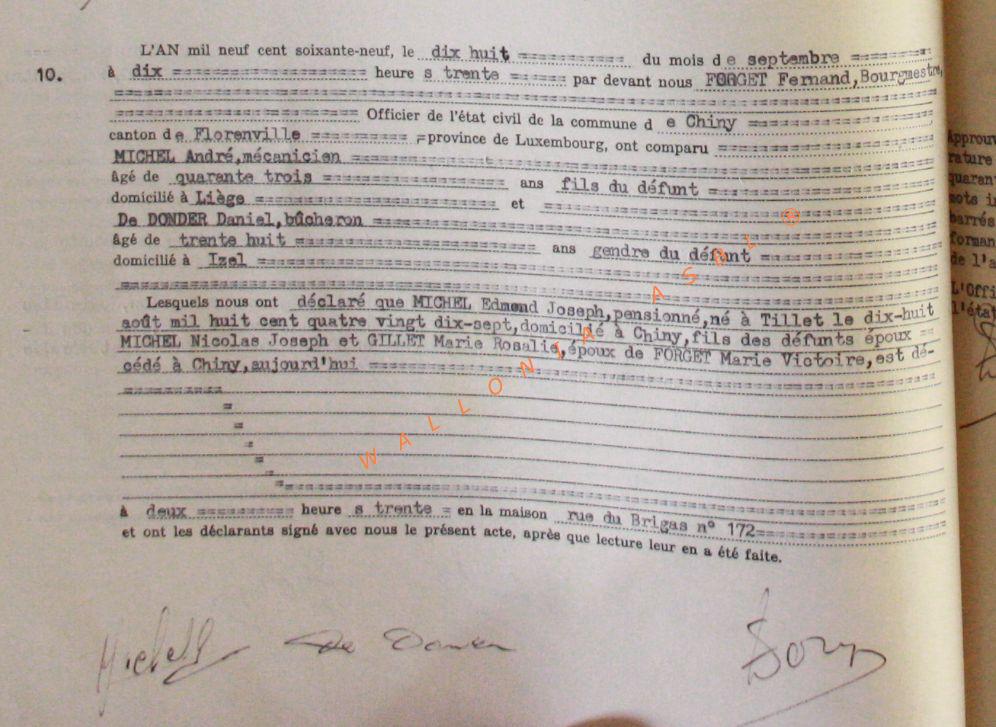 L'AN mil neuf cent soixante-neuf, le dix huit ========== du mois de septembre ========
10. à dix ================== heure s trente ====== par devant nous FORGET Fernand,Bourgmestre,
================== Officier de l'état civil de la commune d e Chiny ==================
canton de Florenville ========== =province de Luxembourg, ont comparu ==================
MICHEL André,mécanicien ==================
âgé de quarante trois ================== ans fils du défunt ==================
domicilié à Liège ================== et ==================
De DONDER Daniel,bûcheron ==================
âgé de trente huit ================== ans gendre du défunt ==================
domicilié à Izel ==================
Lesquels nous ont déclaré que MICHEL Edmond Joseph,pensionné,né à Tillet le dix-huit
août mil huit cent quatre vingt dix-sept,domicilié à Chiny,fils des défunts époux ==
MICHEL Nicolas Joseph et GILLET Marie Rosalie,époux de FORGET Marie Victoire,est dé-
cédé à Chiny,aujourd'hui ==================
à deux ========== heure s trente = en la maison rue du Brigas n° 172==========
et ont les déclarants signé avec nous le présent acte, après que lecture leur en a été faite.
WALLONIA ASBL ®
Approuv
rature
quaran
mots i
barrés
forman
de l'a
L'Offi
l'état